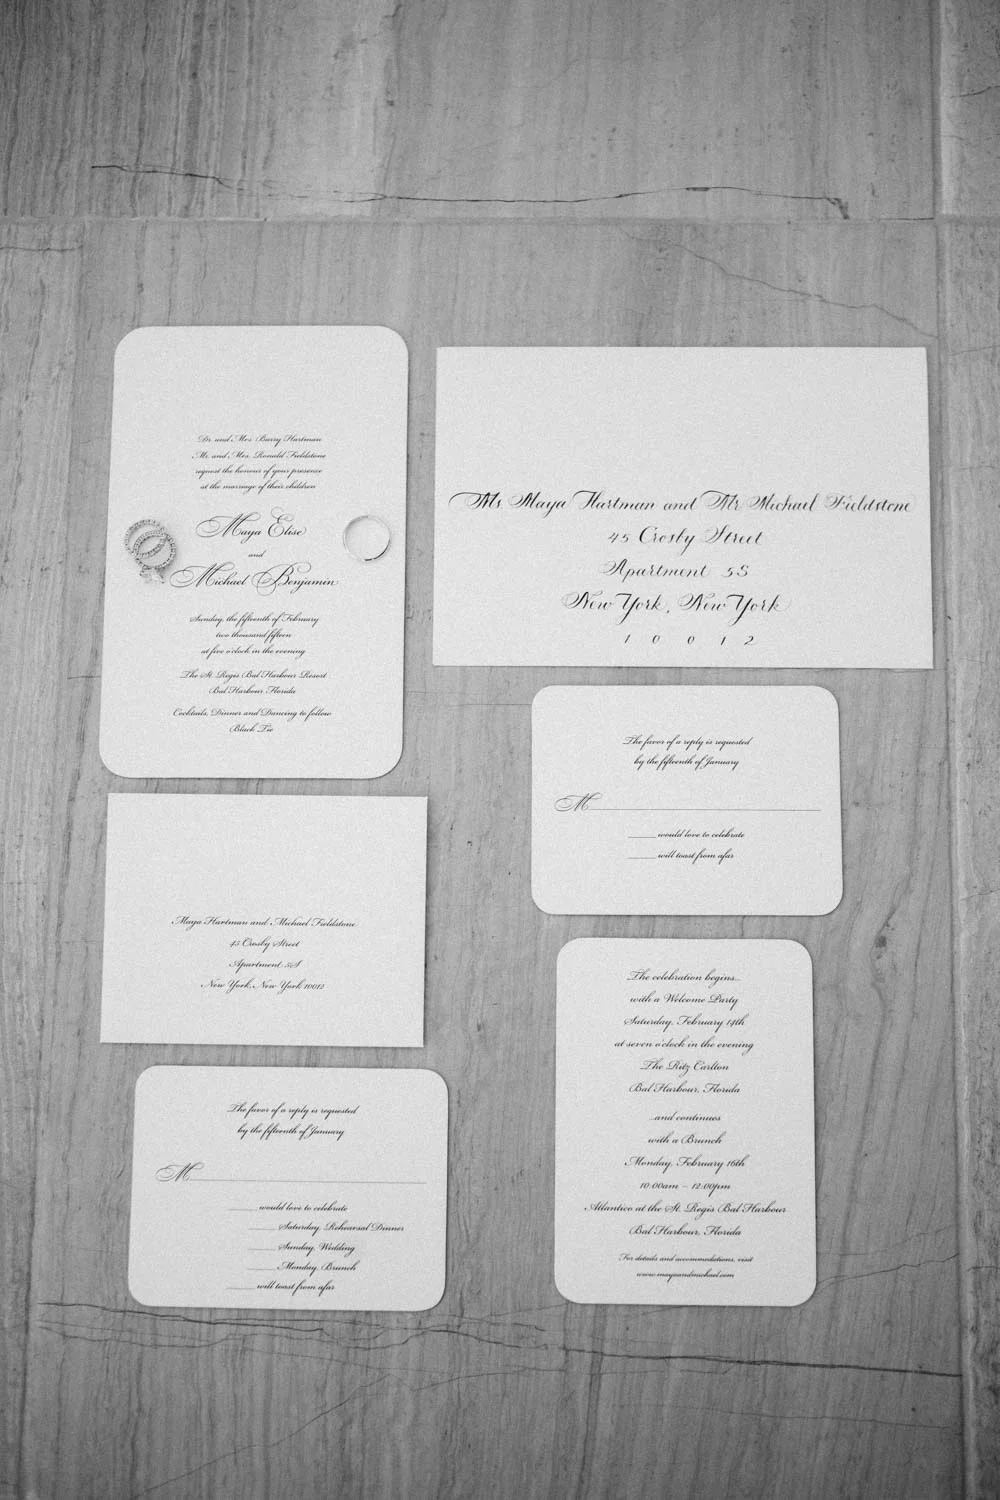 Dr. and Mrs. Barry Hartman
Mr. and Mrs. Ronald Fieldstone
request the honour of your presence
at the marriage of their children
Maya Elise
and
Michael Benjamin
Sunday, the fifteenth of February
two thousand fifteen
at five o'clock in the evening
The St. Regis Bal Harbour Resort
Bal Harbour, Florida
Cocktails, Dinner and Dancing to follow
Black Tie
Ms. Maya Hartman and Mr. Michael Fieldstone
45 Crosby Street
Apartment 5S
New York, New York
1 0 0 1 2
The favor of a reply is requested
by the fifteenth of January
M
would love to celebrate
will toast from afar
Maya Hartman and Michael Fieldstone
45 Crosby Street
Apartment 5S
New York, New York 10012
The celebration begins...
with a Welcome Party
Saturday, February 14th
at seven o'clock in the evening
The Ritz Carlton
Bal Harbour, Florida
...and continues
with a Brunch
Monday, February 16th
10:00am – 12:00pm
Atlantico at the St. Regis Bal Harbour
Bal Harbour, Florida
For details and accommodations, visit
www.mayaandmichael.com
The favor of a reply is requested
by the fifteenth of January
M
would love to celebrate
Saturday, Rehearsal Dinner
Sunday, Wedding
Monday, Brunch
will toast from afar